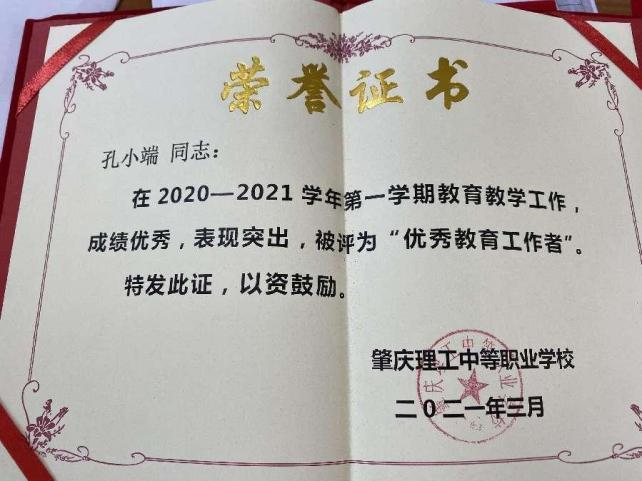 荣誉证书
孔小端 同志：
在2020—2021学年第一学期教育教学工作，
成绩优秀，表现突出，被评为“优秀教育工作者”。
特发此证，以资鼓励。
肇庆理工中等职业学校
二〇二一年三月
肇庆理工中等职业学校